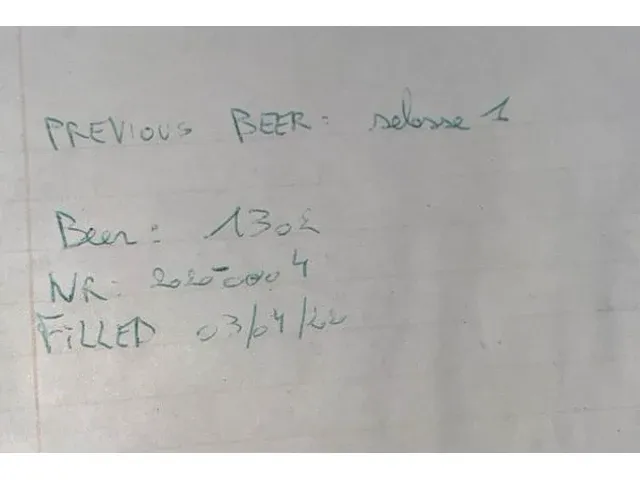 PREVIOUS BEER: selosse 1
Beer: 1302
NR: 2020-0004
FiLLED 03/04/20